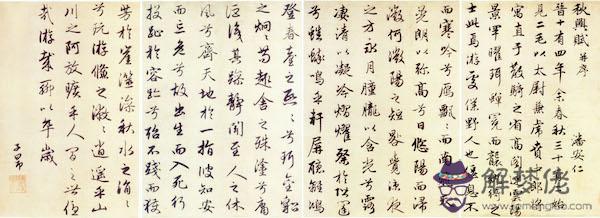 秋興賦 并序 潘安仁
晉十有四年余春秋三十有二始
見二毛以太尉兼虎賁中郎將
寓直于散騎之省高閣連雲陽
景罕曜珥蟬冕而襲紈綺之
士此焉游處僕野人也偃息不
而寒吟兮雁飄飄而南
晃朗以彌高兮日悠陽而浸
微何微陽之短晷覺涼夜
之方永月朣朧以含光兮露
凄清以凝冷熠燿粲於階闥
兮蟋蟀鳴乎軒屏聽離鴻
登春臺之熙熙兮珥金貂
之炯炯苟趣舍之殊塗兮庸
詎識其躁靜聞至人之休
風兮齊天地於一指彼知安
而忘危兮故出生而入死行
投趾於容跡兮殆不踐而獲
芳於崖澨澡秋水之涓涓
兮玩游儵之潎潎逍遙乎山
川之阿放曠乎人間之世優
哉游哉聊以卒歲
子昂
解夢佬